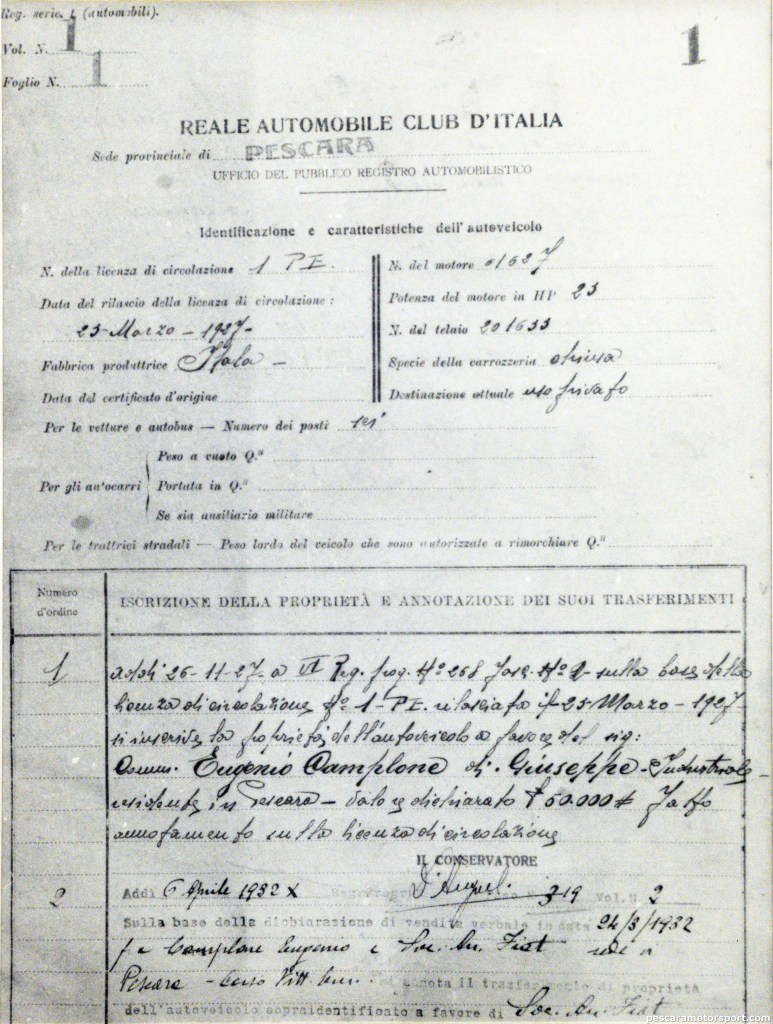 Reg. serie I (automobili).
Vol. N. 1
1
Foglio N. 1
REALE AUTOMOBILE CLUB D'ITALIA
Sede provinciale di PESCARA
UFFICIO DEL PUBBLICO REGISTRO AUTOMOBILISTICO
Identificazione e caratteristiche dell'autoveicolo
N. della licenza di circolazione 1 PE.
Data del rilascio della licenza di circolazione :
25 Marzo - 1927-
Fabbrica produttrice Itala -
Data del certificato d'origine
N. del motore 61627
Potenza del motore in HP 25
N. del telaio 201633
Specie della carrozzeria chiusa
Destinazione attuale uso privato
Per le vetture e autobus — Numero dei posti sei
Per gli autocarri
Peso a vuoto Q.li
Portata in Q.li
Se sia ausiliario militare
Per le trattrici stradali — Peso lordo del veicolo che sono autorizzate a rimorchiare Q.li
Numero d'ordine
ISCRIZIONE DELLA PROPRIETÀ E ANNOTAZIONE DEI SUOI TRASFERIMENTI
1
addì 26-11-27- a VI Reg. prog. N° 268 fasc. N° 2- sulla base della
licenza di circolazione N° 1-PE. rilasciata il 25 Marzo - 1927-
si inscrive la proprietà dell'autoveicolo a favore del sig:
Comm. Eugenio Camplone di Giuseppe - Industriale -
residente in Pescara - valore dichiarato £ 50.000 fatto
annotamento sulla licenza di circolazione
IL CONSERVATORE
2
Addì 6 Aprile 1932 X 319 Vol. N 2
Sulla base della dichiarazione di vendita verbale in data 24/3/1932
fra Camplone Eugenio e Soc. An. Fiat
Pescara - Corso Vitt. Em. si annota il trasferimento di proprietà
dell'autoveicolo sopraidentificato a favore di Soc. An. Fiat
pescaramotorsport.com